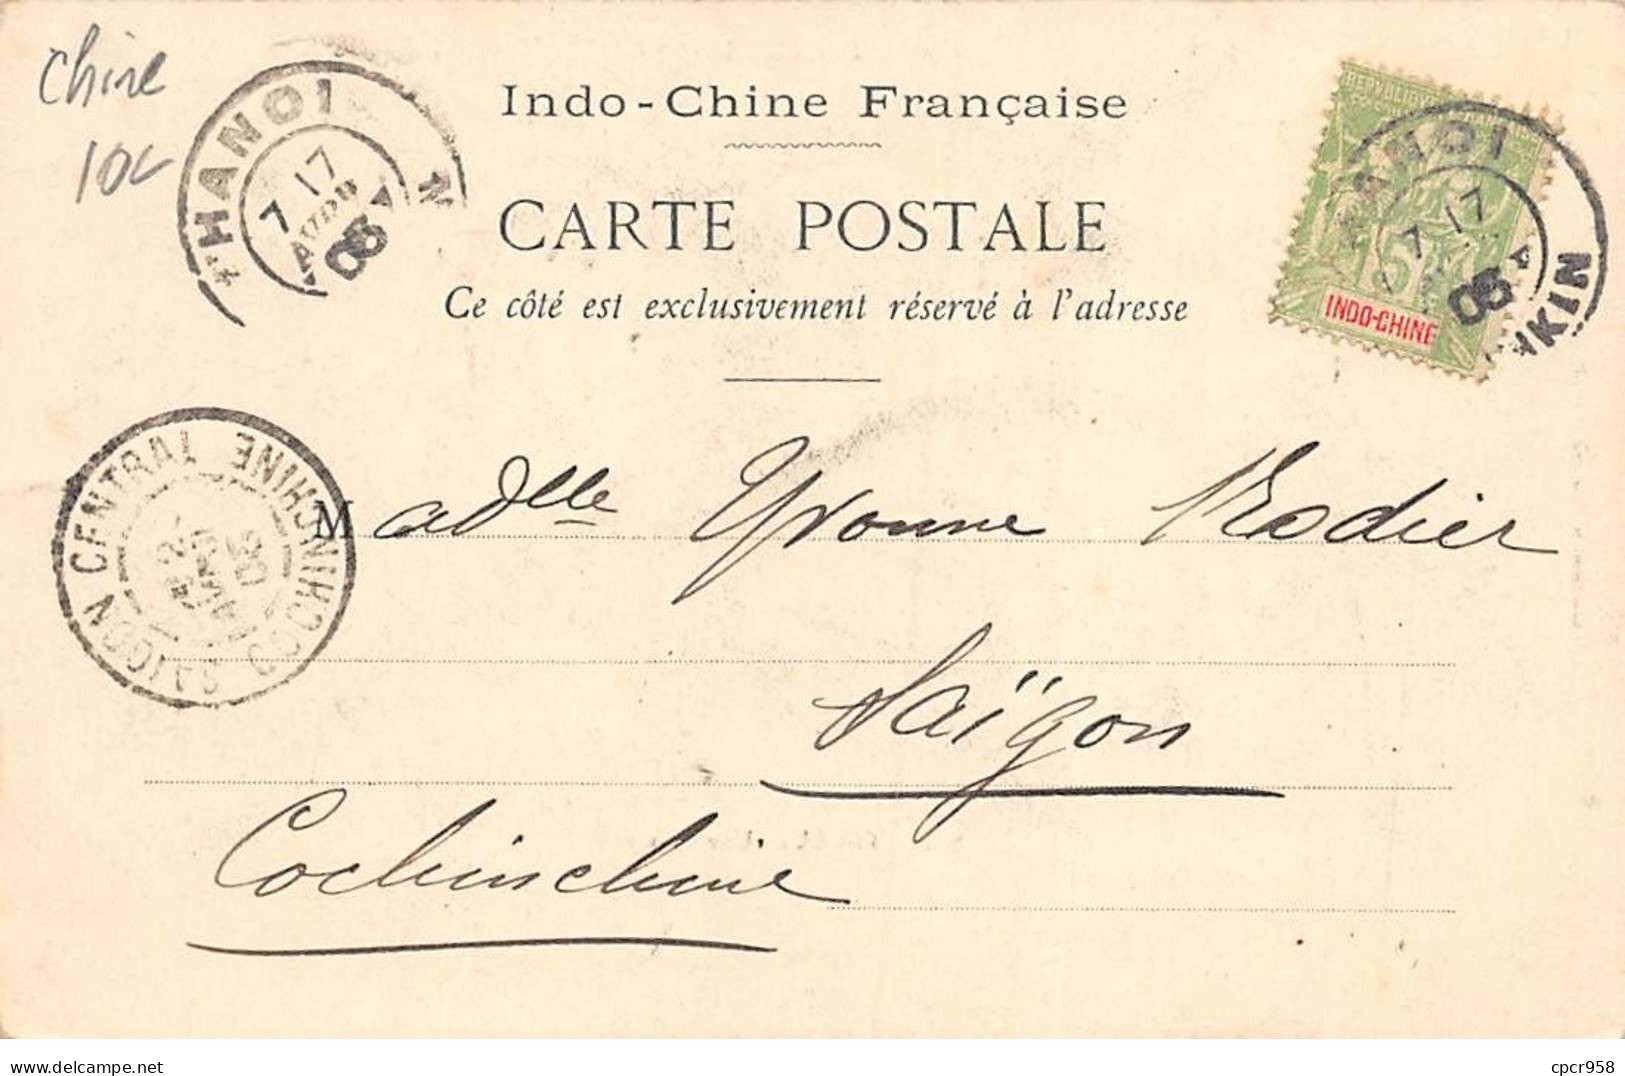 Chine
10c
HANOI
7 17
AVRIL
05
N
Indo-Chine Française
CARTE POSTALE
Ce côté est exclusivement réservé à l'adresse
REPUBLIQUE FRANCAISE
5
INDO-CHINE
HANOI
7 17
05
NKIN
SAIGON CENTRAL COCHINCHINE
AVRIL
05
Madelle Yvonne Rodier
Saïgon
Cochinchine
delcampe.net
cpcr958